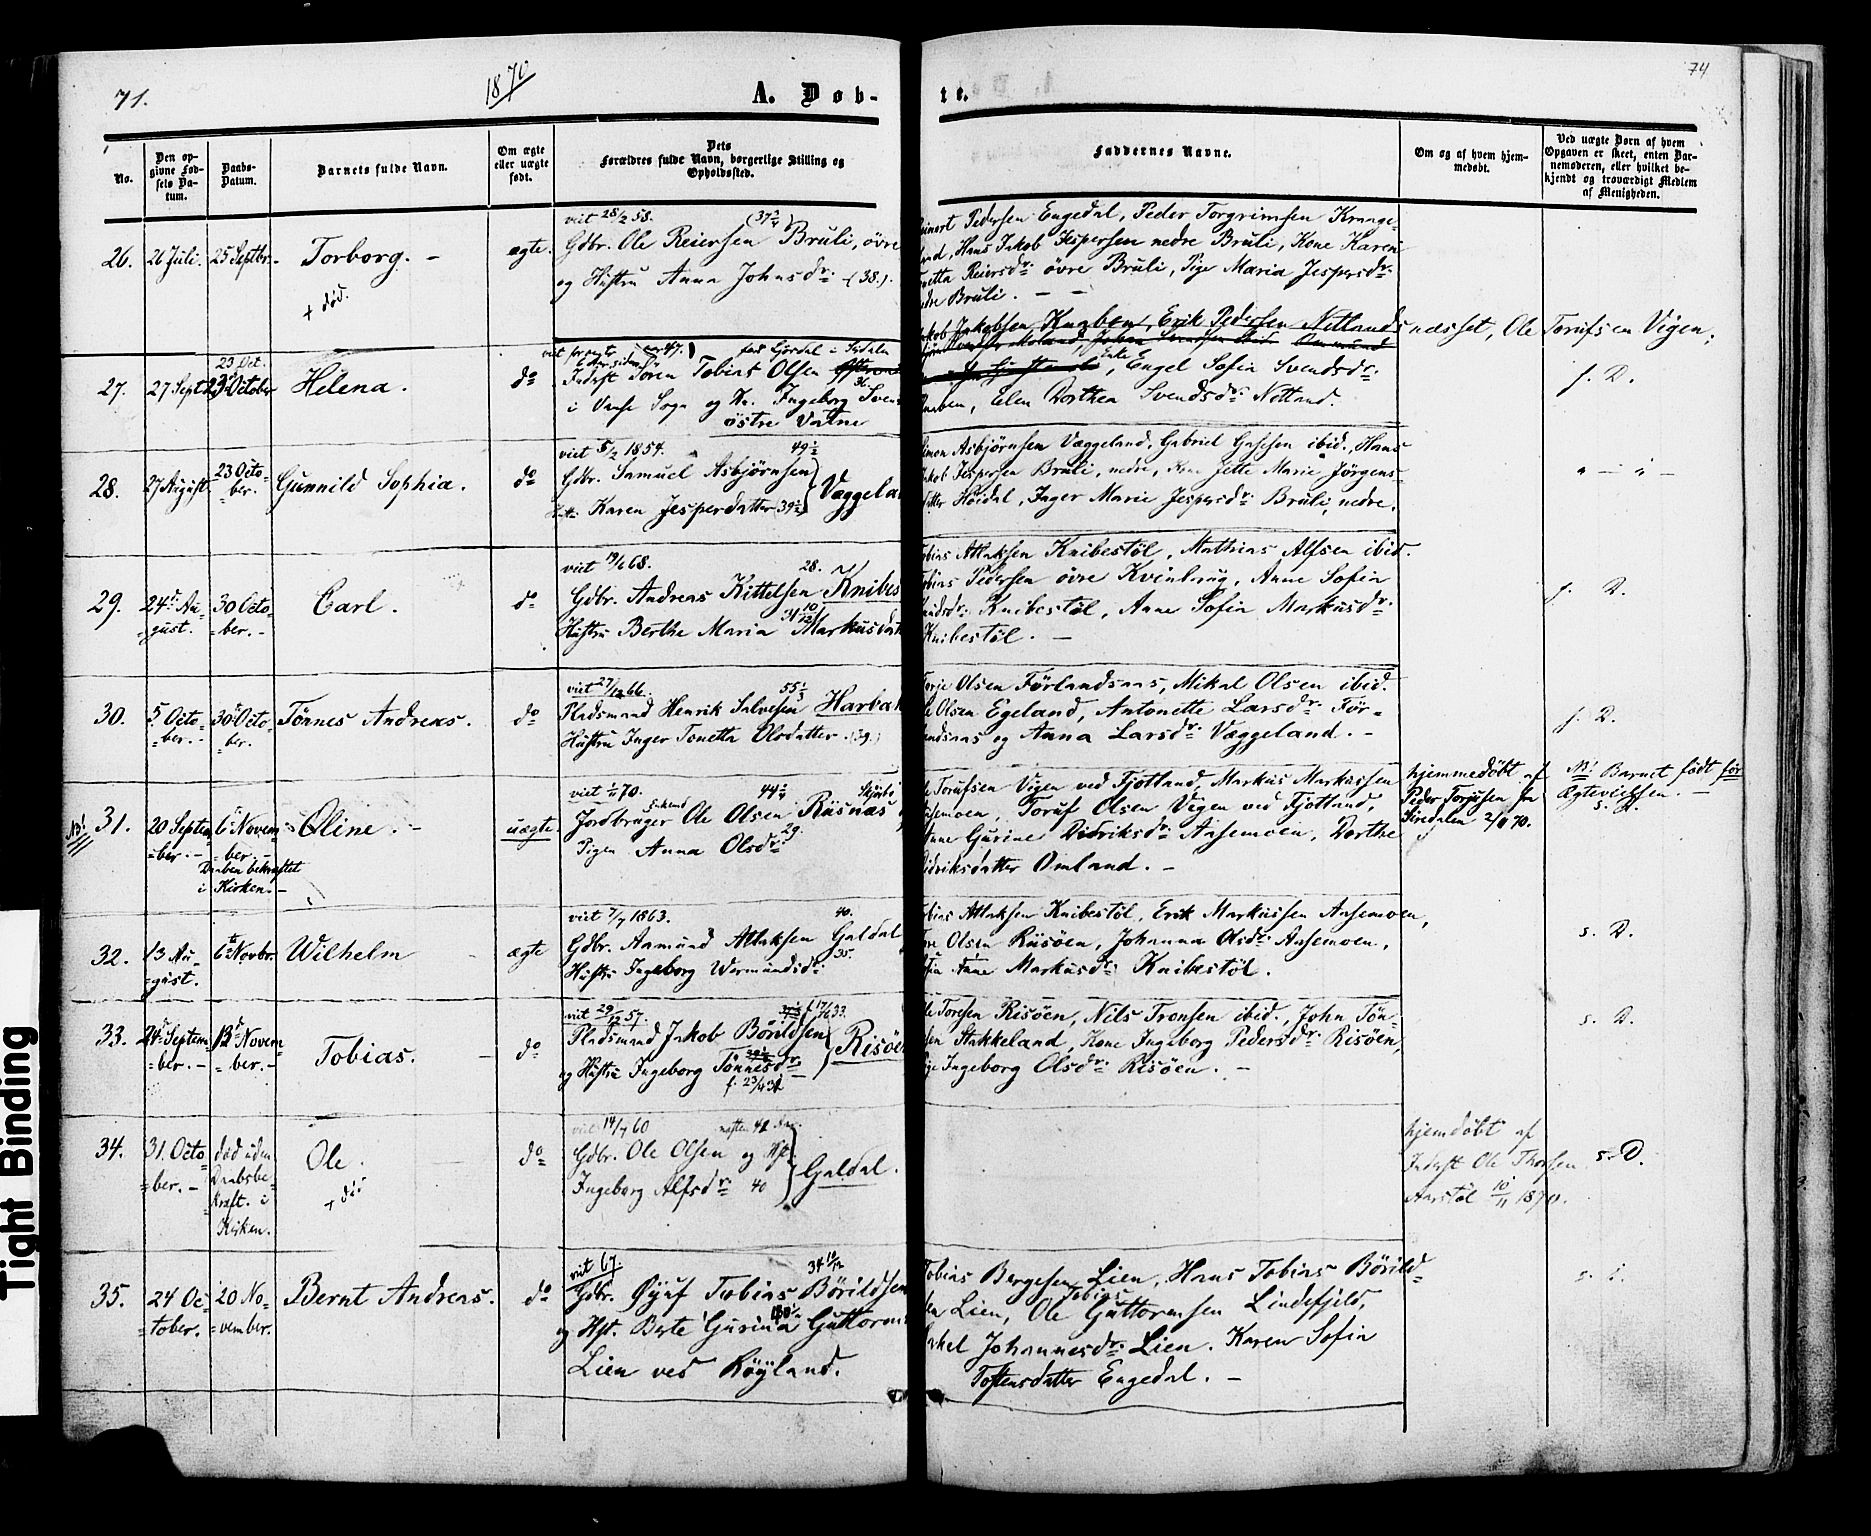 71.
1870
A. Døb-
te.
74
No.
Den opgivne Fødsels Datum.
Daabs-Datum.
Barnets fulde Navn.
Om ægte eller uægte født.
Dets Forældres fulde Navn, borgerlige Stilling og Opholdssted.
Faddernes Navne.
Om og af hvem hjemmedøbt.
Ved uægte Børn af hvem Opgaven er skeet, enten Barnemoderen, eller hvilket bekjendt og troværdigt Medlem af Menigheden.
26.
26 Juli.
25 Septbr.
Torborg. -
+ død.
ægte.
viet 28/2 58.
Gdbr. Ole Reiersen Bruli, øvre
og Hustru Anna Johnsdr. (38.)
Pedersen Engedal, Peder Torgrimsen Krage-
Hans Jakob Jespersen nedre Bruli, Kone Karen
Reiersdr. øvre Bruli, Pige Maria Jespersdr.
Bruli. - -
27.
27 Sept.
23 October
Helena.
do
Inderst Sören Tobias Olsen
i Vanse Sogn og Ingeborg
østre Vatne
Jakobsen Knaben, Erik Pedersen Netlandsnæsset, Ole Torufsen Vigen;
Enke, Engel Sofia Svendsdr.
Elen Dorthea Svendsdr. Netland.
f. D.
28.
27 August
23 Octo-
ber.
Gunnild Sophia.
do
viet 5/2 1854. 49 1/2
Gdbr. Samuel Asbjørnsen
Karen Jesperdatter (39 1/2)
Væggeland
Asbjørnsen Væggeland, Gabriel ibid., Hans
Jespersen Bruli, nedre, Kone Jette Marie Jörgens-
Høidal, Inger Marie Jespersdr. Bruli, nedre.
" - " -
29.
24 d. Au-
gust.
30 Octo-
ber. -
Carl.
do
viet 19/6 68. 28.
Gdbr. Andreas Kittelsen Knibes
Hustru Berthe Maria Markusdat
Atlaksen Knibestöl, Mathias Alfsen ibid.
Pedersen øvre Kvinlaug, Anne Sofia
Knibestöl, Anne Sofia Markusdr.
Knibestöl. -
f. D.
30.
5 Octo-
ber. -
30 Octo-
ber.
Tönnes Andreas.
do
viet 27/12 66. 55 1/3
Pladsmand Henrik Salvesen Harbak
Hustru Inger Tonetta Olsdatter. (39.)
Olsen Förlandsaas, Mikal Olsen ibid.
Olsen Egeland, Antonette Larsdr. För-
landsaas og Anna Larsdr. Væggeland. -
f. D.
NB!
31.
20 Septem-
ber. -
6 Novem-
ber. -
Daaben bekræftet
i Kirken. -
Oline. -
uægte.
viet 1/11 70. 44 3/4
Jordbruger Ole Olsen Risnæs
Pigen Anna Olsdr. 29.
Torufsen Vigen ved Fjotland, Markus Markussen
Toruf Olsen Vigen ved Fjotland,
Gurine Didriksdr. Aasemoen, Dorthe
Didriksdatter Omland. -
hjemmedøbt af
Peder Torjusen fra
Siredalen 2/11 70.
NB! Barnet født før
Ægtevielsen. -
s. D.
32.
13 Au-
gust.
6 Novbr.
Wilhelm
ægte
viet 7/7 1863. 40.
Gdbr. Aamund Atlaksen Galdal
Hustru Ingeborg Wermundsdr. 35.
Atlaksen Knibestöl, Erik Markussen Aasemoen,
Olsen Risöen, Johanna Olsdr. Aasemoen,
Anne Markusdr. Knibestöl.
s. D.
33.
24 Septem-
ber. -
13 Novem-
ber. -
Tobias.
do
viet 29/12 57.
Pladsmand Jakob Børildsen
og Hustru Ingeborg Tönnesdr.
Risöen
Toresen Risöen, Nils Tronsen ibid., John Tön-
Stakkeland, Kone Ingeborg Pedersdr. Risöen,
Ingeborg Olsdr. Risöen. -
s. D.
34.
31. Octo-
ber. -
død uden
Daabsbe-
kræft. i
Kirken.
Ole.
+ død
do
viet 14/7 60
Gdbr. Ole Olsen og Hst.
Ingeborg Alfsdr. 40
Galdal.
hjemdøbt af
Inderst Ole Thorsen
Aarstöl 10/11 1870.
s. D.
35.
24 Oc-
tober.
20 No-
vember.
Bernt Andreas.
do
viet 67 34 10/12
Gdbr. Øyuf Tobias Børildsen
og Hst. Berte Gurina Guttorm
Lien ved Røyland.
Tobias Bergesen Lien, Hans Tobias Børild-
sen Lien, Ole Tobias Guttormsen Lindefjeld,
Johannesdr. Lien. Karen Sofia
Toftensdatter Engedal. -
Tight Binding